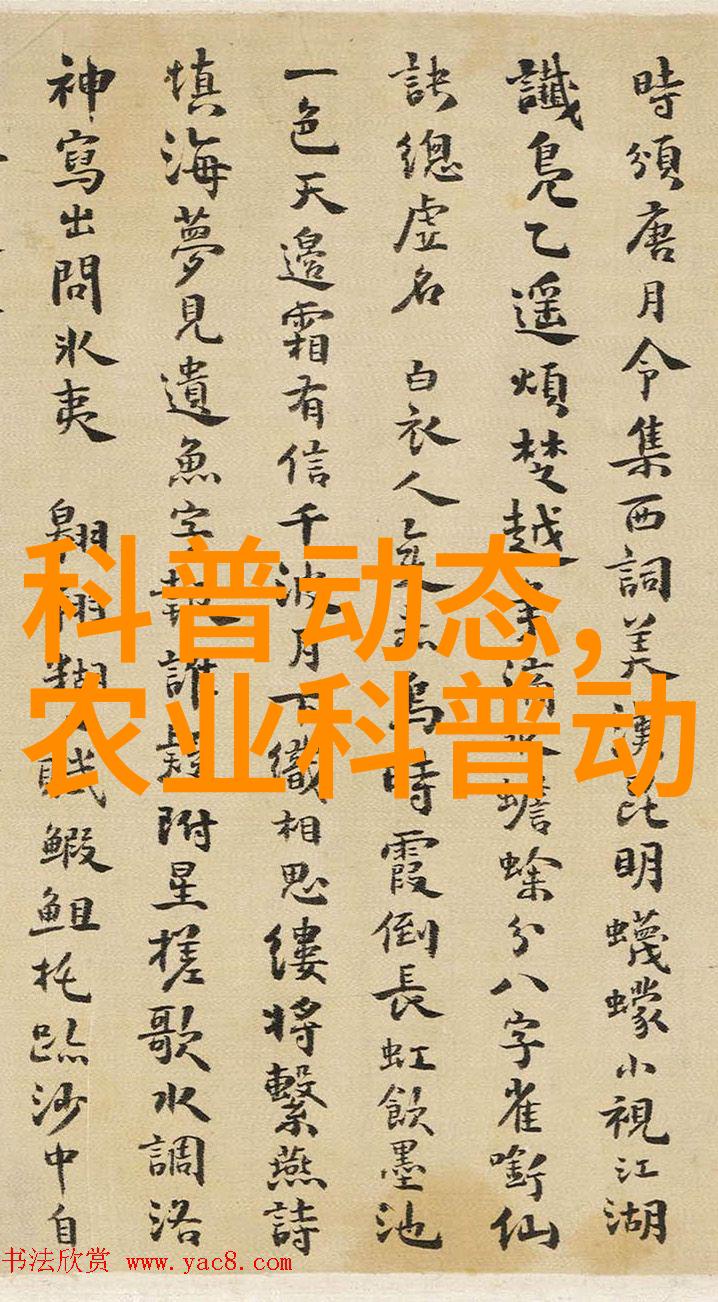 時頒唐月令集西詞美漢昆明蠛蠓小視江湖
讖鳧乙遥煩楚越 蟾蜍分八字雀銜仙
訣總虚名 白衣人 烏時霞倒長虹飲墨池
一色天邊霜有信千波月下織相思縷將繫燕詩
慎海夢見遺魚字 誰疑附星槎歌水調洛
神寫出問冰夷 翩翩 賦鰕鉏托 沙中自
科普动态，
农业科普动
书法欣赏 www.yac8.com